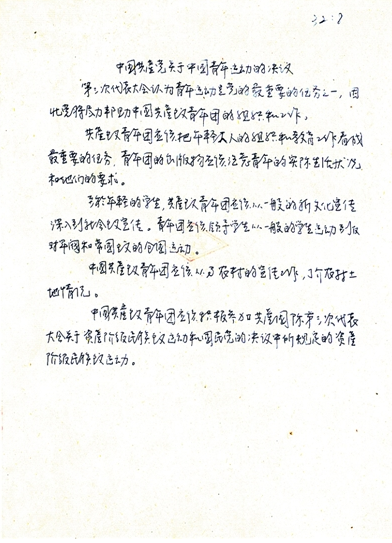 32:7
中国共産党关于中国青年运动的决议
第三次代表大会认为青年运动是党的最重要的任务之一，因
此党将尽力帮助中国共産主义青年团的组织和工作。
共産主义青年团应该把年轻工人的组织和教育工作看成
最重要的任务，青年团的出版物应该注意青年的实际生活状况
和他们的要求。
对于年轻的学生，共産主义青年团应该从一般的新文化宣传
深入到社会主义宣传。青年团应该领导学生从一般的学生运动到反
对军阀和帝国主义的全国运动。
中国共産主义青年团应该从事农村的宣传工作，了解农村土
地情况。
中国共産主义青年团应该积极参加共産国际第三次代表
大会关于资産阶级民族主义运动和国民党的决议中所规定的资産
阶级民族主义运动。